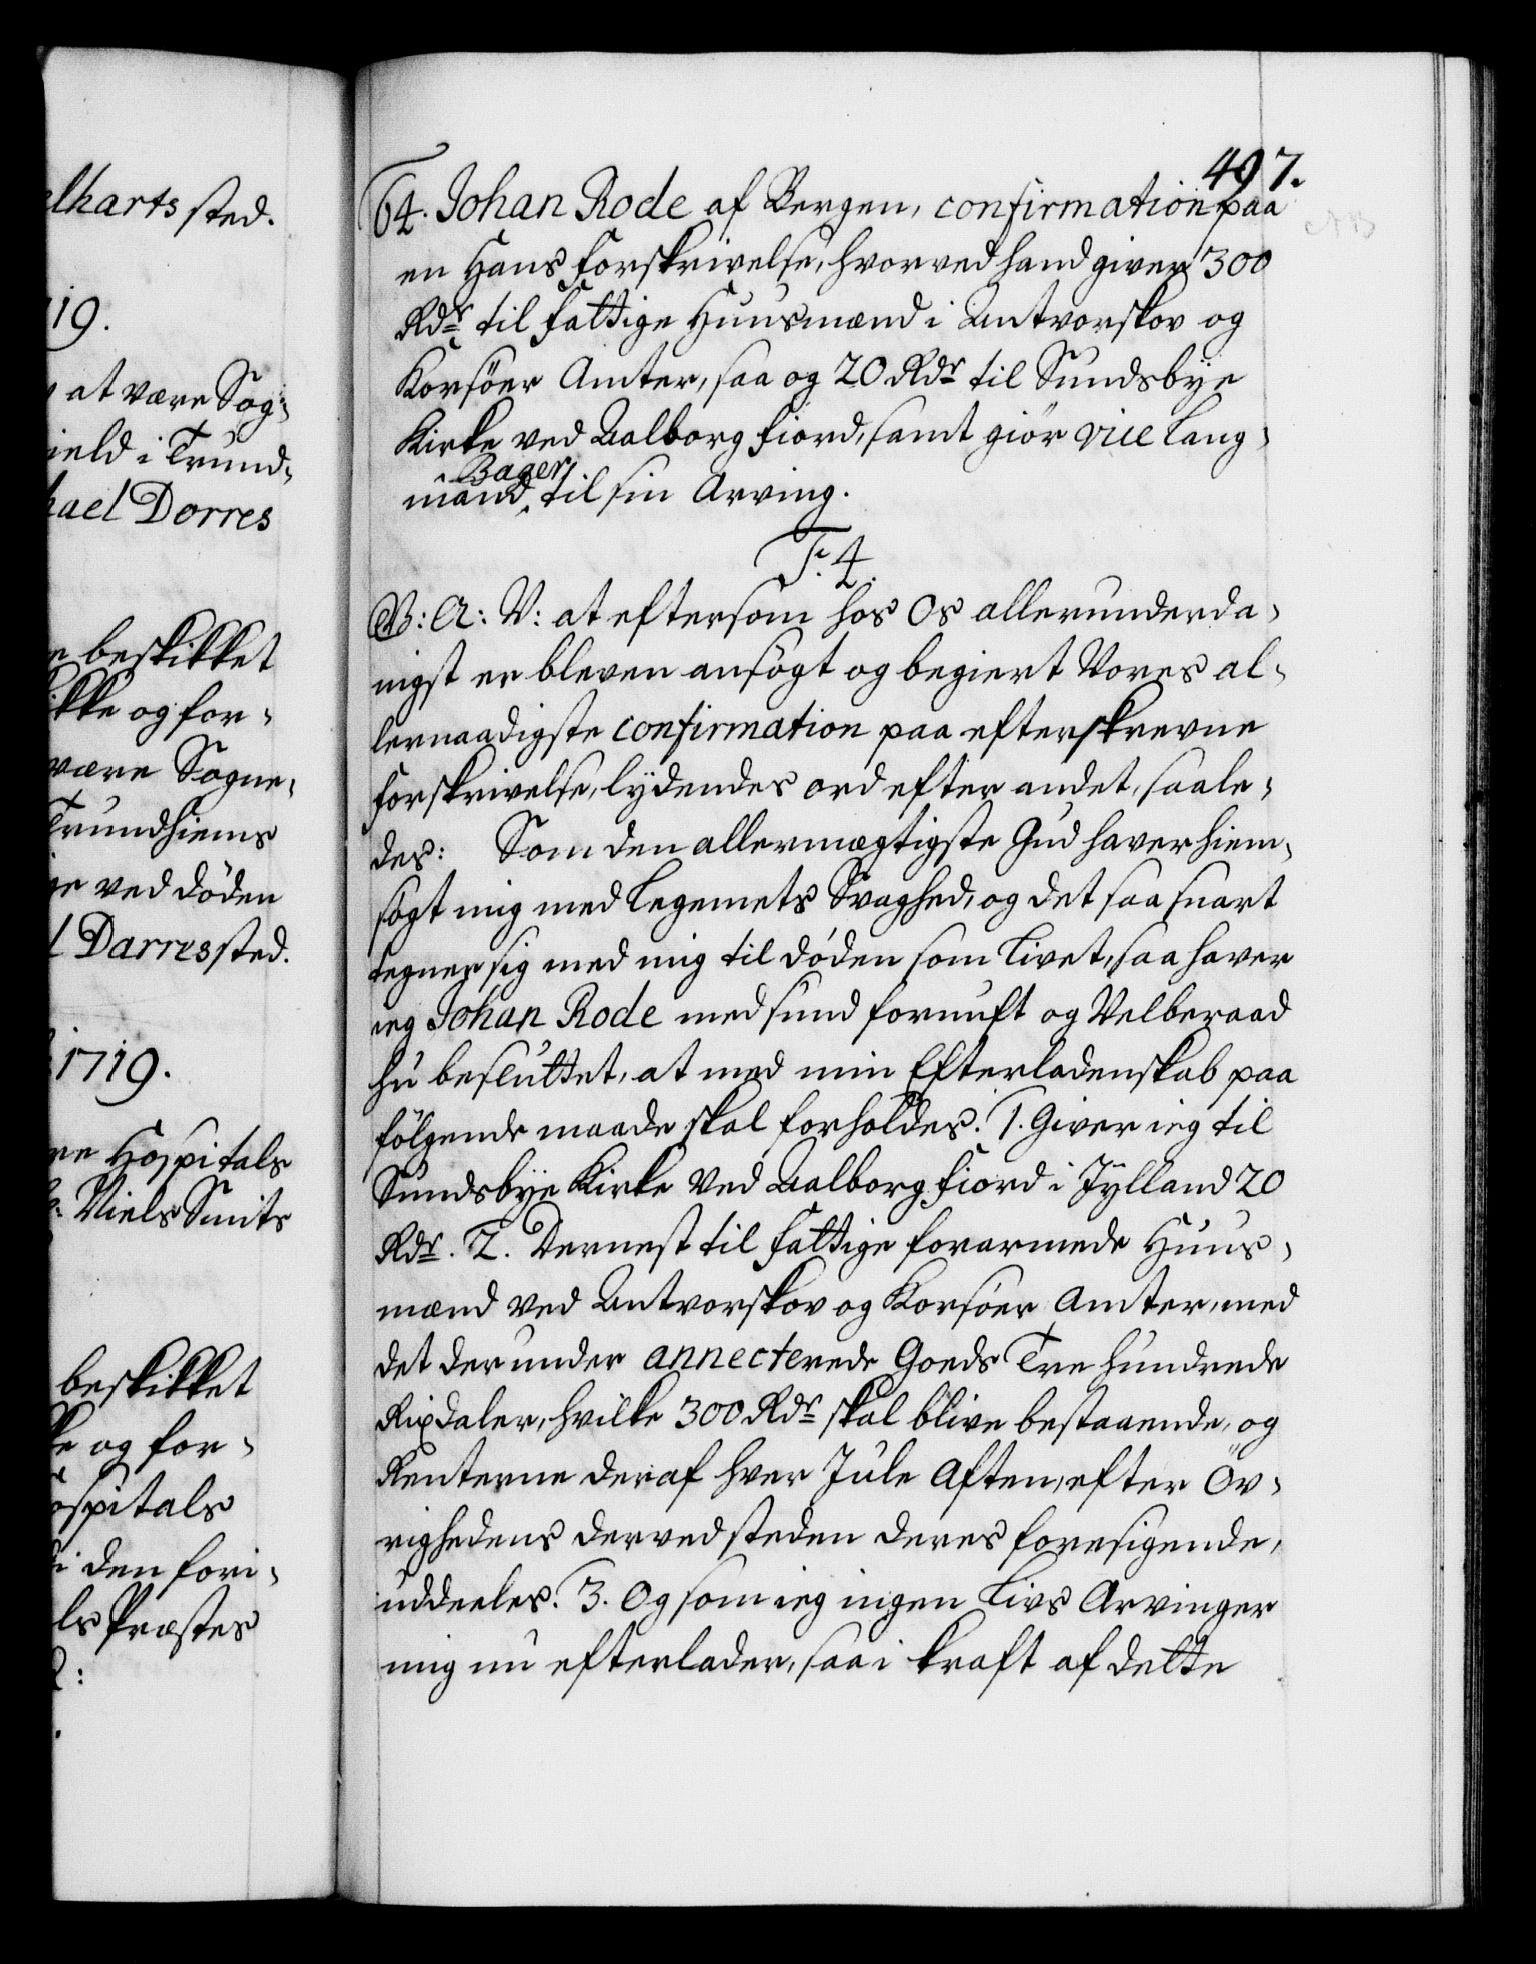 elharts sted.
19.
at være Sog¬
ield i Trund¬
hael Dorres
beskikket
ikke og for¬
være Sogne¬
Trundhiems
ved döden
Darres sted.
1719.
re Hospitals
Niels Smits
beskikket
og for¬
ospitals
i den fori¬
ls Præstes
497.
64. Johan Rode af Bergen, confirmation paa
en Hans Forskrivelse, hvorved hand giver 300
Rdr til Fattige Huusmænd i Antvorskov og
Korsöer Amter, saa og 20 Rdr til Sundsbye
Kirke ved Aalborg Fiord, samt giör vice Laug¬
mand Bager til sin Arving.
F. 4.
W: A: V: at eftersom hos Os allerunderda¬
nigst er bleven ansögt og begiert Vores al¬
lernaadigste confirmation paa efterskrevne
forskrivelse, lÿdendes ord efter andet, saale¬
des: Som den allermægtigste Gud haver hiem¬
sögt mig med Legemets Svaghed, og det saa snart
tegner sig med mig til döden som Livet, saa haver
ieg Johan Rode med sund fornuft og Velberaad
hu besluttet, at med min Efterladenskab paa
fölgende maade skal forholdes. 1. Giver ieg til
Sundsbye Kirke ved Aalborg Fiord i Jÿlland 20
Rdr. 2. Dernest til Fattige forarmede Huus¬
mænd ved Antvorskov og Korsöer Amter, med
det derunder annecterede Goeds Tre hundrede
Rixdaler, hvilke 300 Rdr skal blive bestaaende, og
Renterne deraf hver Jule Aften, efter Öv¬
righedens derved steden deres foresigende,
uddeeles. 3. Og som ieg ingen Livs Arvinger
mig nu efterlader, saa i kraft af dette